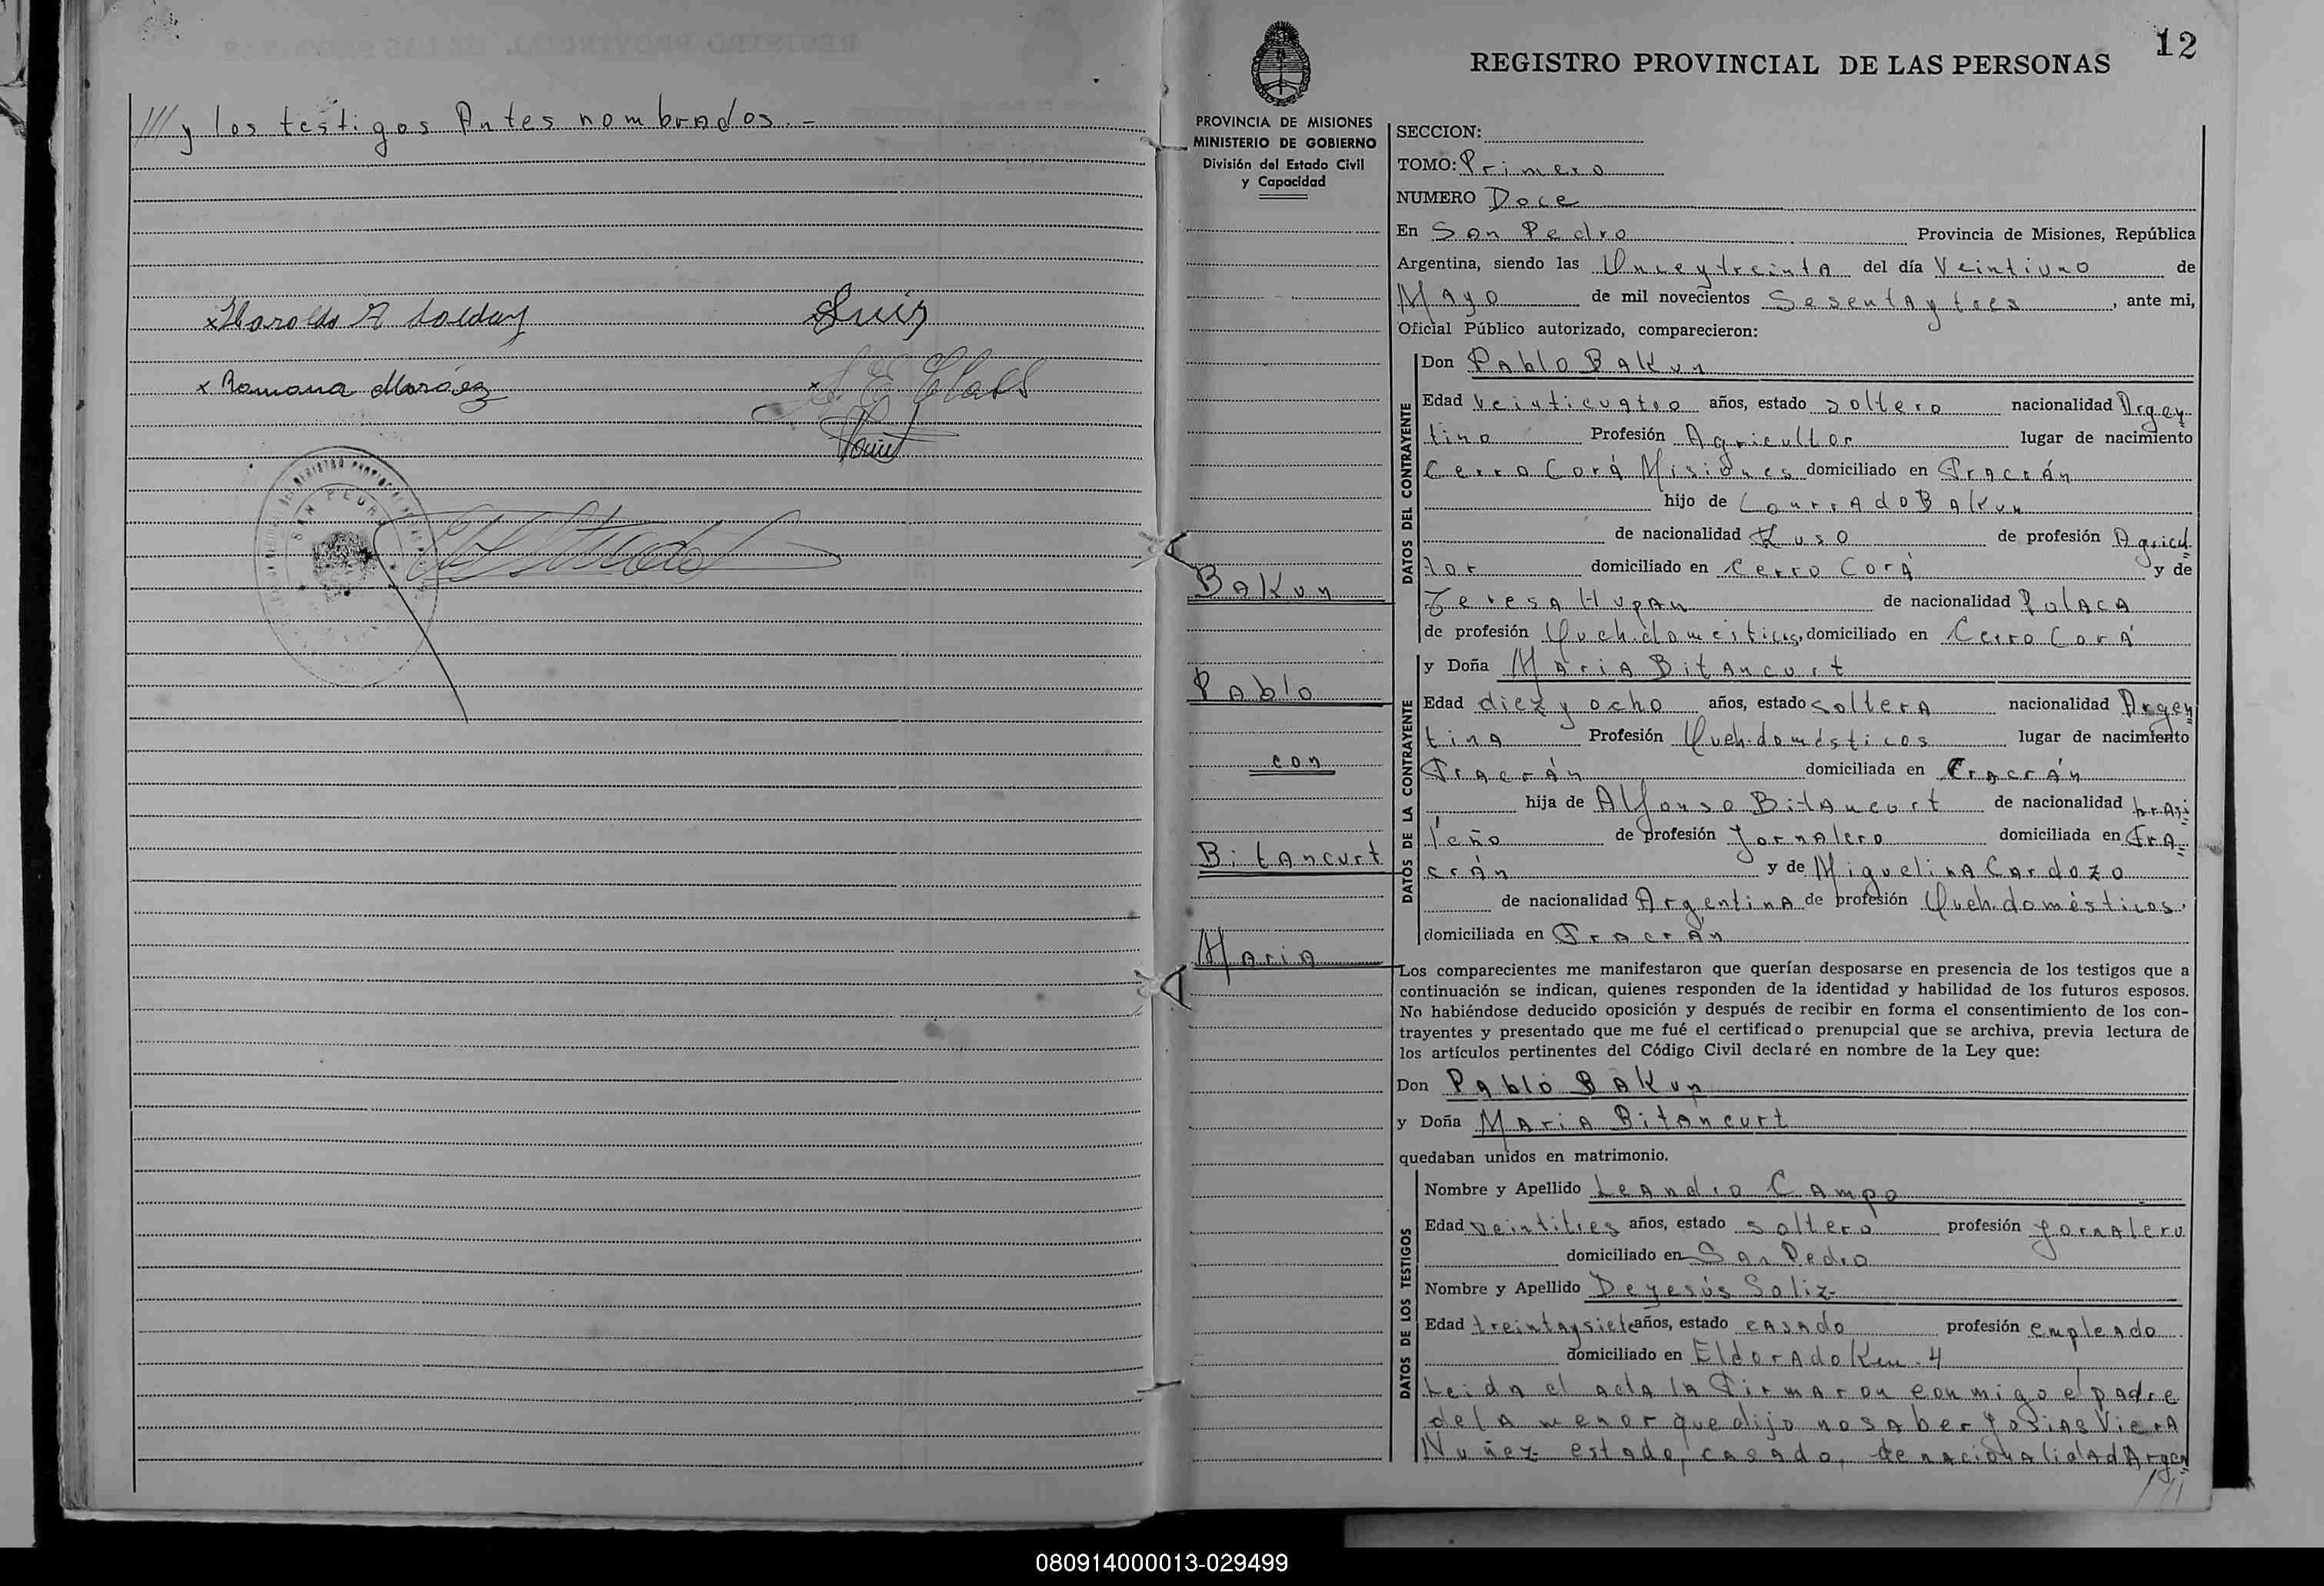 /// y los testigos Antes nombrados.-
x Haroldo A Solday
Luis
x Romana Maráez
SAN PEDRO
12
REGISTRO PROVINCIAL DE LAS PERSONAS
PROVINCIA DE MISIONES
MINISTERIO DE GOBIERNO
División del Estado Civil
y Capacidad
Bakun
Pablo
con
Bitancurt
Maria
SECCION:
TOMO: Primero
NUMERO Doce
En San Pedro Provincia de Misiones, República
Argentina, siendo las Onceytreinta del día Veintiuno de
Mayo de mil novecientos Sesentaytres, ante mi,
Oficial Público autorizado, comparecieron:
DATOS DEL CONTRAYENTE
Don Pablo Bakun
Edad veinticuatro años, estado soltero nacionalidad Argen
tino Profesión Agricultor lugar de nacimiento
Cerro Corá Misiones domiciliado en Fracrán
hijo de Conrrado Bakun
de nacionalidad Ruso de profesión Agricul
tor domiciliado en Cerro Corá y de
Teresa Hupan de nacionalidad Polaca
de profesión Queh. domésticos, domiciliado en Cerro Corá
DATOS DE LA CONTRAYENTE
y Doña Maria Bitancurt
Edad diez y ocho años, estado soltera nacionalidad Argen
tina Profesión Queh. domésticos lugar de nacimiento
Fracrán domiciliada en Fracrán
hija de Alfonso Bitancurt de nacionalidad brasi
leño de profesión Jornalero domiciliada en Fra
crán y de Miguelina Cardozo
de nacionalidad Argentina de profesión Queh. domésticos,
domiciliada en Fracrán
Los comparecientes me manifestaron que querían desposarse en presencia de los testigos que a
continuación se indican, quienes responden de la identidad y habilidad de los futuros esposos.
No habiéndose deducido oposición y después de recibir en forma el consentimiento de los con-
trayentes y presentado que me fué el certificado prenupcial que se archiva, previa lectura de
los artículos pertinentes del Código Civil declaré en nombre de la Ley que:
Don Pablo Bakun
y Doña Maria Bitancurt
quedaban unidos en matrimonio.
DATOS DE LOS TESTIGOS
Nombre y Apellido Leandro Campo
Edad veintitres años, estado soltero profesión jornalero
domiciliado en San Pedro
Nombre y Apellido Dejesús Soliz
Edad treintaysiete años, estado casado profesión empleado
domiciliado en Eldorado Km. 4
Leida el acta la firmaron conmigo el padre
de la menor que dijo no saber Josias Viera
Nuñez estado, casado, de nacionalidad Argen
///
080914000013-029499